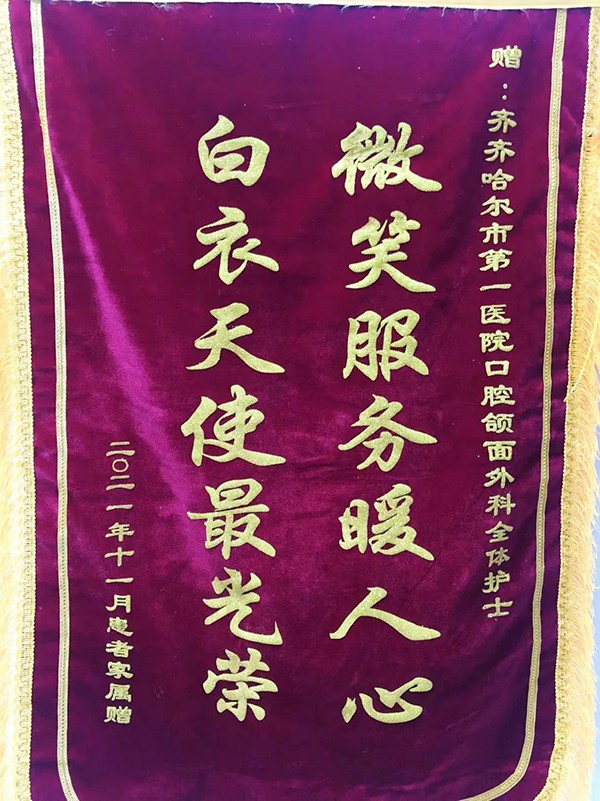 赠：齐齐哈尔市第一医院口腔颌面外科全体护士
微笑服务暖人心
白衣天使最光荣
二〇二一年十一月患者家属赠